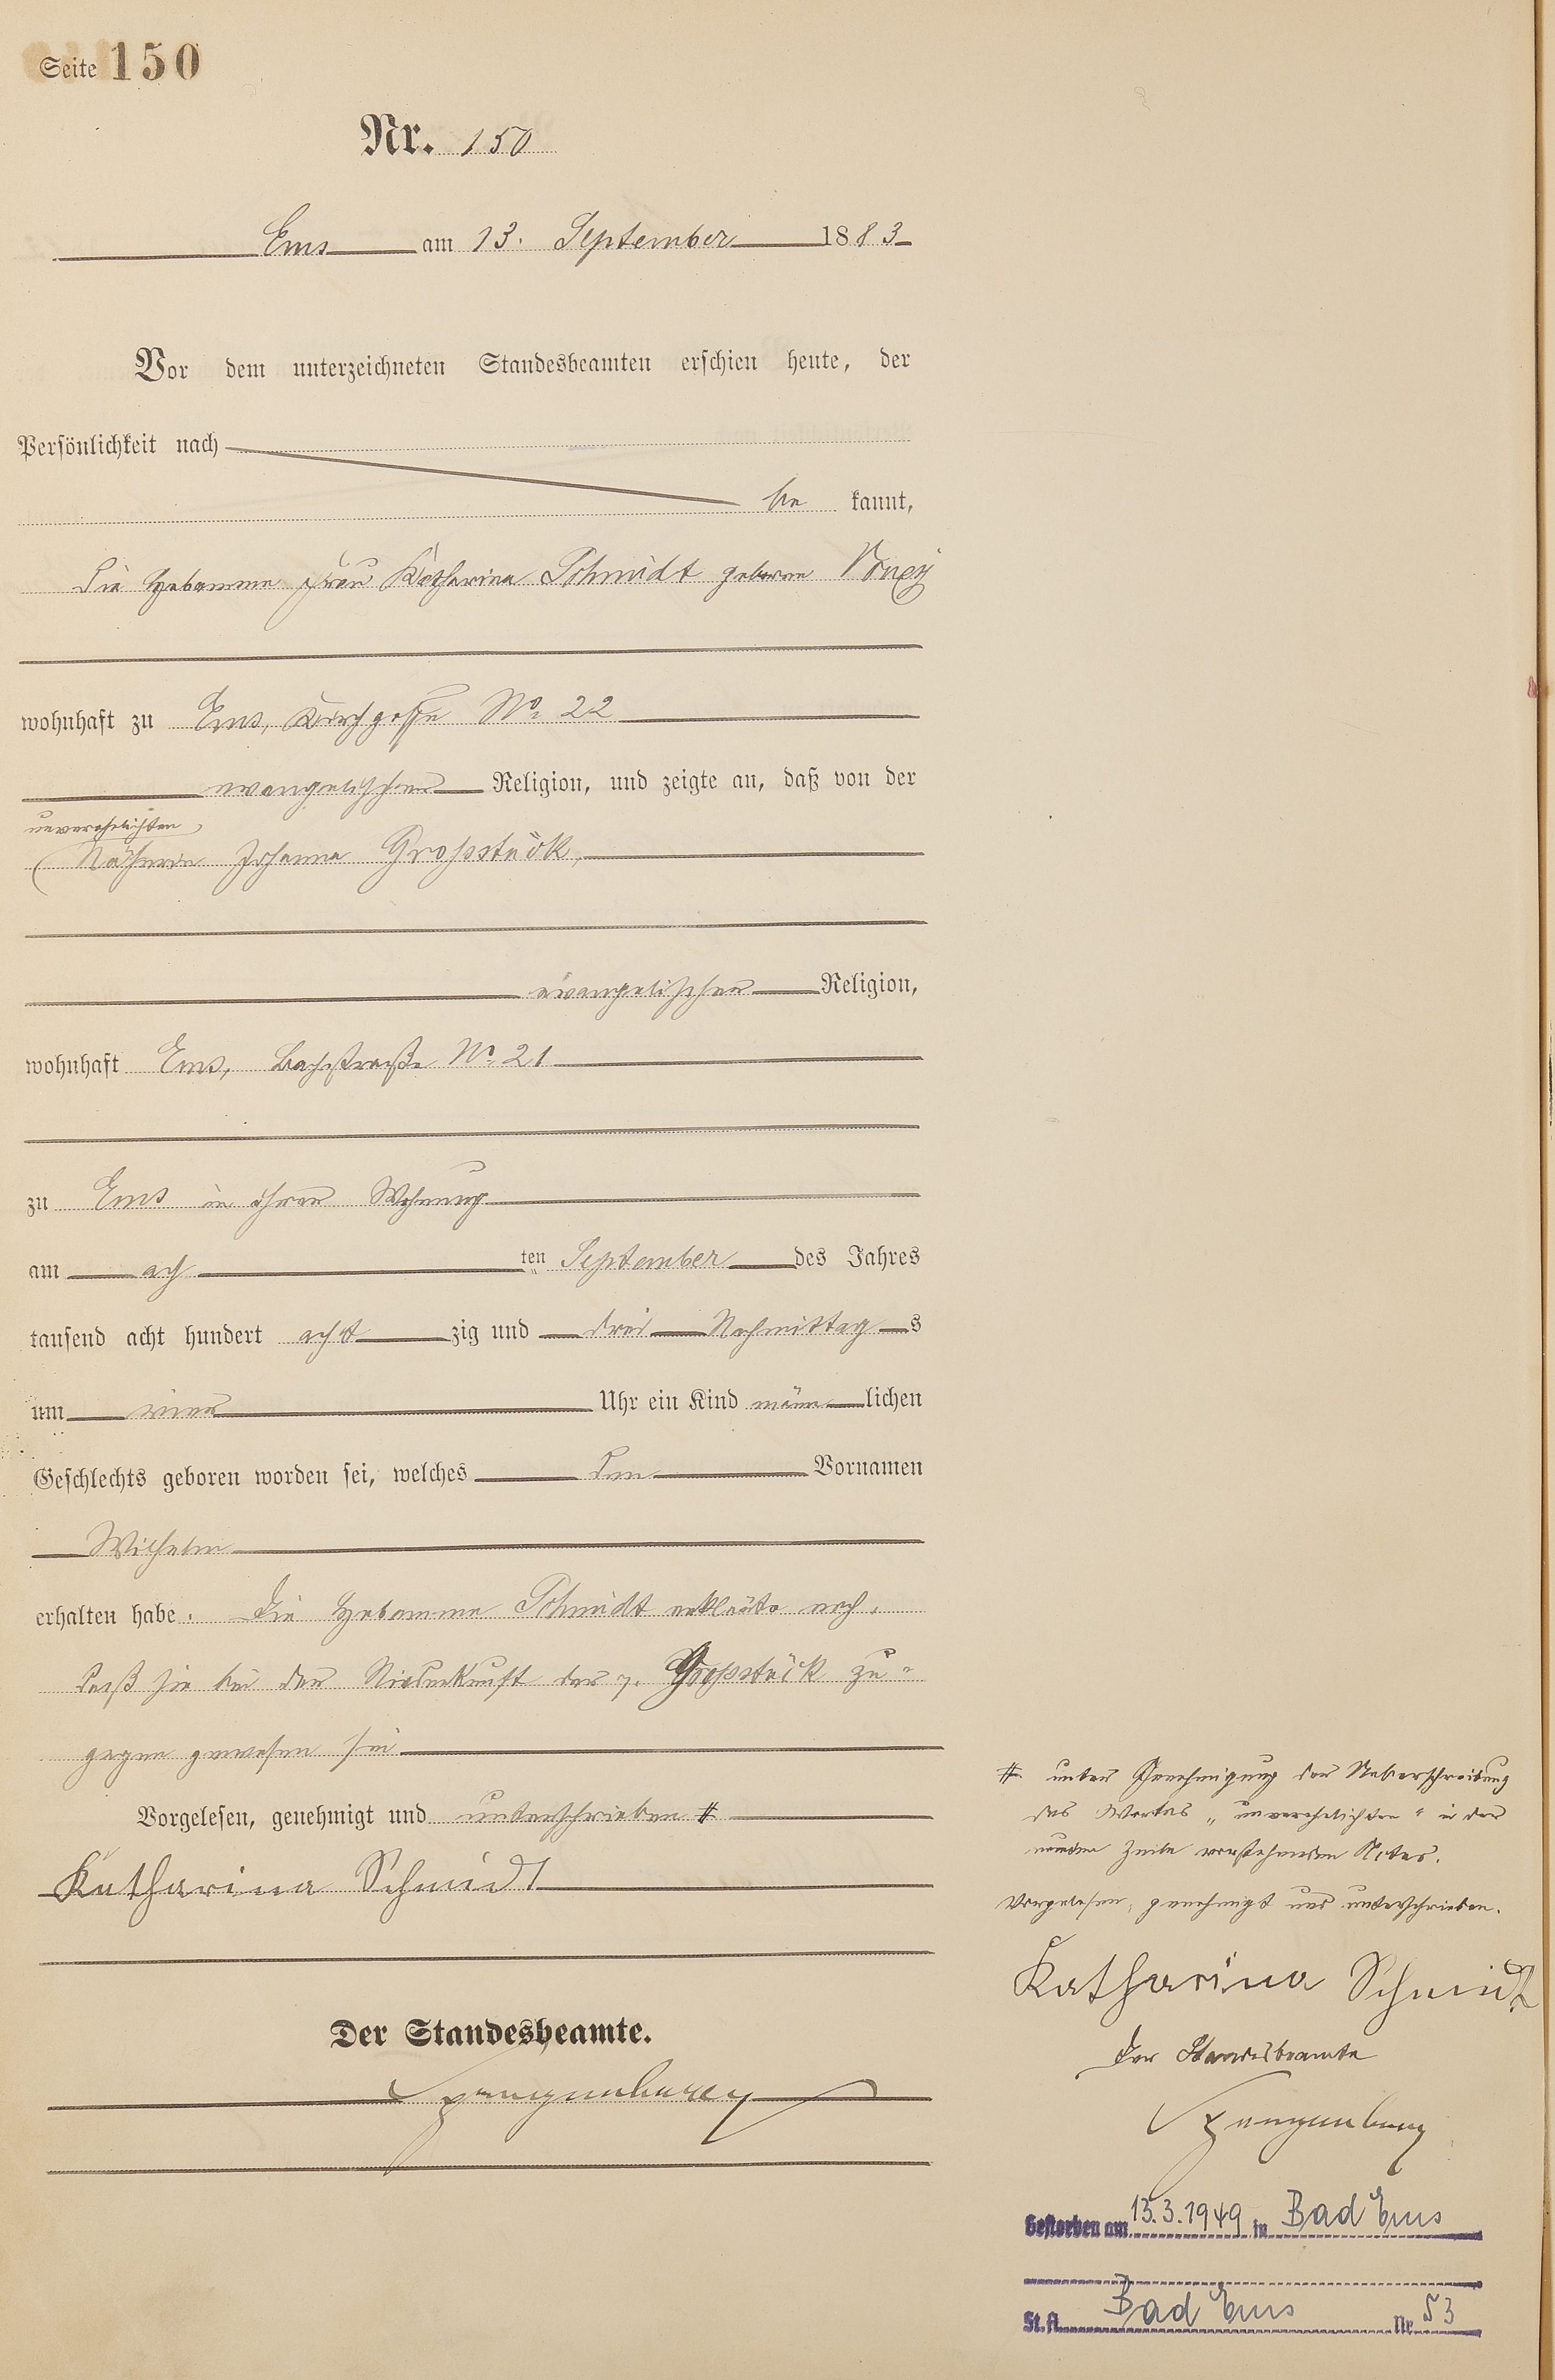 Seite 150
Nr. 150
Ems am 13. September 1883
Vor dem unterzeichneten Standesbeamten erschien heute, der
Persönlichkeit nach
be kannt,
die Hebamme Frau Katharina Schmidt geborene
wohnhaft zu Ems, Kirchgasse No. 22
evangelischer Religion, und zeigte an, daß von der
unverehelichten
Näherin Johanna Grossstück,
evangelischer Religion,
wohnhaft Ems, Bachstraße No. 21
zu Ems in ihrer Wohnung
am ach ten September des Jahres
tausend acht hundert acht zig und drei Nachmittag s
um vier Uhr ein Kind männ lichen
Geschlechts geboren worden sei, welches den Vornamen
Wilhelm
erhalten habe. Die Hebamme Schmidt erklärte noch,
daß sie bei der Niederkunft der p. Grossstück zu-
gegen gewesen sei
Vorgelesen, genehmigt und unterschrieben #
Katharina Schmidt
Der Standesbeamte.
Spangenberg
# unter Genehmigung der Ueberschreibung
des Wortes „unverehelichten" in der
neunten Zeile vorstehenden Actes.
Vorgelesen, genehmigt und unterschrieben.
Katharina Schmidt
Der Standesbeamte
Spangenberg
Gestorben am 13.3.1949 in Bad Ems
St.A. Bad Ems Nr. 53